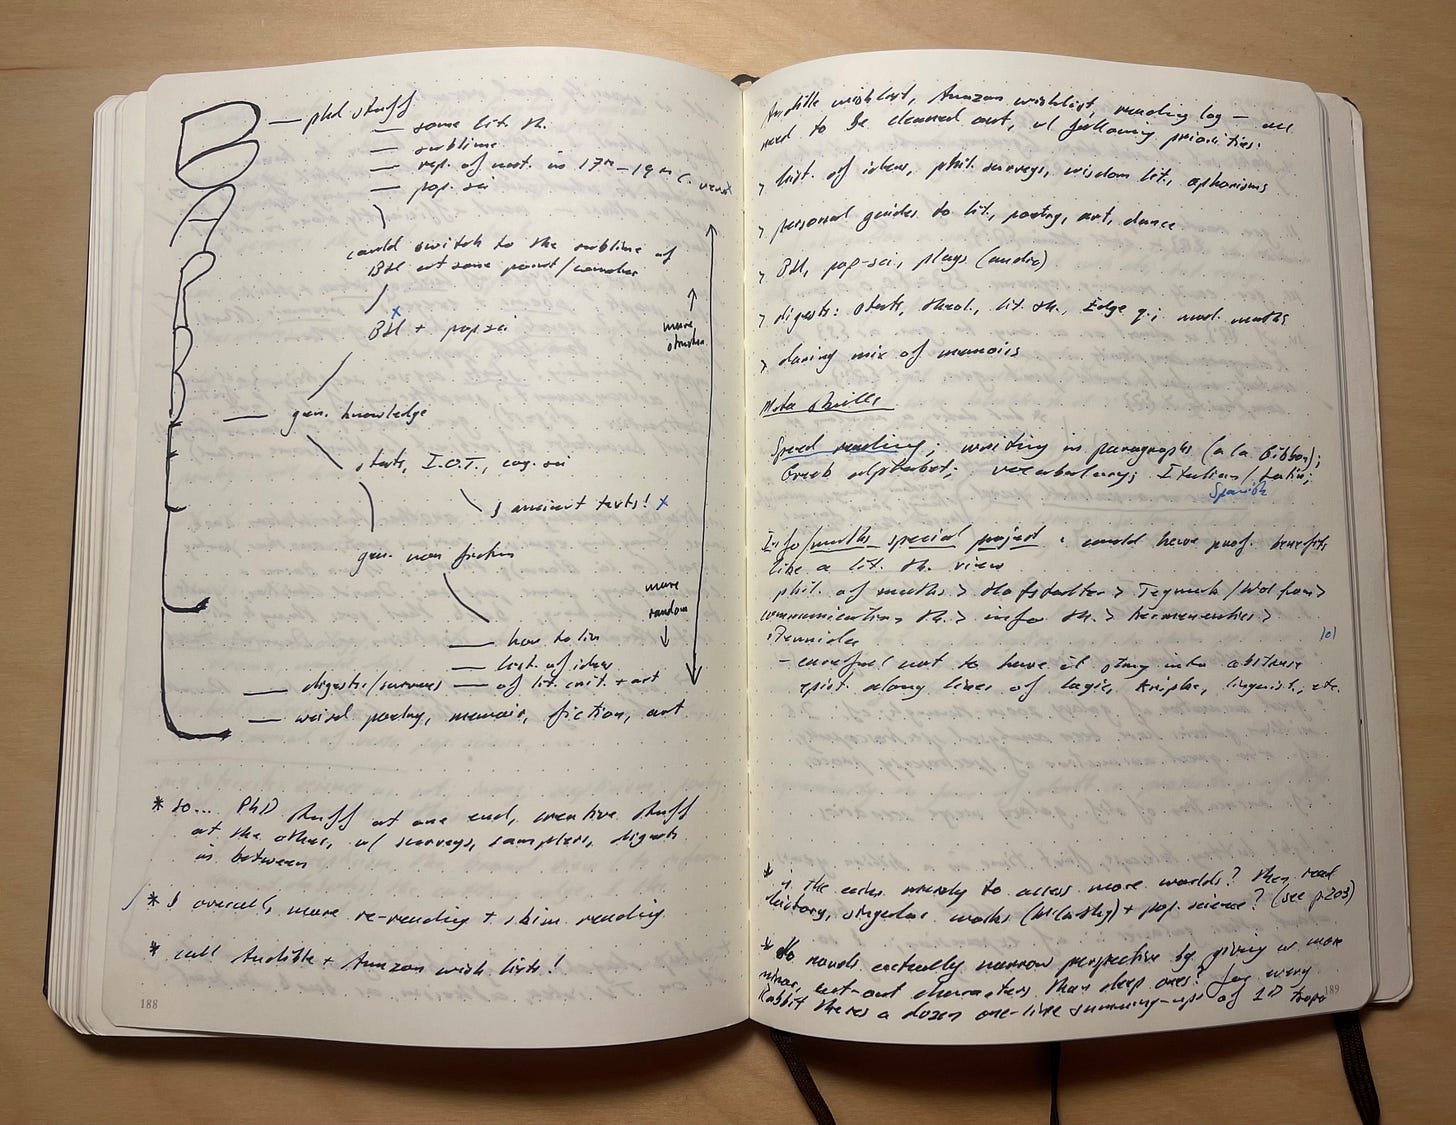 — phd stuff
— some lit. th.
— sublime
— rep. of nat. in 17th–19th c. verse
— pop. sci
could switch to the sublime of
at some point / consider
+ pop sci
more
gen. knowledge
I.O.T., cog. sci
& ancient texts! x
gen. non fiction
more
random
— how to live
— hist. of ideas
— digests/surveys — of lit. crit. + art
— weird poetry, memoir, fiction, art
* so... PhD stuff at one end, creative stuff
at the other, w/ surveys, samplers, digests
in between
* & overall, more re-reading + skim reading
* cull Audible + Amazon wish lists!
188
Audible wishlist, Amazon wishlist, reading log — all
need to be cleaned out, w/ following priorities:
> hist. of ideas, phil. surveys, wisdom lit., aphorisms
> personal guides to lit., poetry, art, dance
> pop-sci, plays (audio)
> digests: theol., lit. th., Edge q.; maths
> daring mix of memoirs
Meta skills
Speed reading; writing in paragraphs (a la Gibbon);
Greek alphabet; vocabulary; Italian/Latin;
Spanish
Info/maths special project: could have prof. benefits
like a lit. th. view
phil. of maths > Hofstadter > Tegmark/Wolfram >
communication th. > info th. > hermeneutics >
lol
– careful not to have it stray into abstruse
epist. along lines of logic, Kripke, linguist., etc.
* is the idea merely to access more worlds? Then read
history, singular works (McCarthy) + pop. science? (see p203)
* do novels actually narrow perspective by giving us more
minor, cut-out characters than deep ones? For every
Rabbit there's a dozen one-line summing-ups of 2D
189